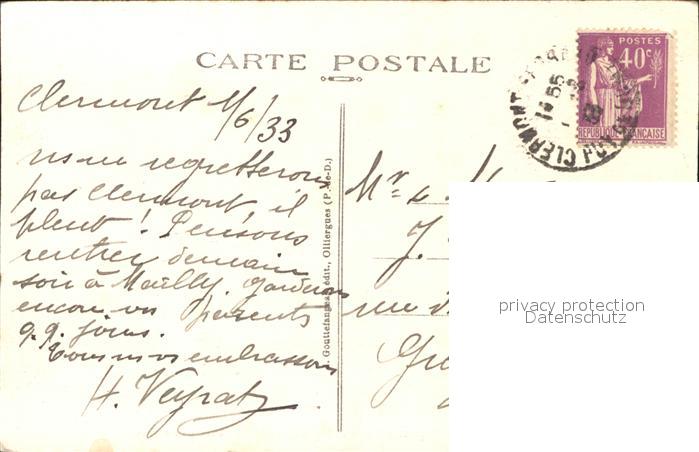 CARTE POSTALE
POSTES
40c
REPUBLIQUE FRANÇAISE
Clermont 1/6/33
ns ne regretterons
pas Clermont, il
pleut ! Pensons
rentrer demain
soir à Mailly. Garderons
encore vos parents
q.q. jours.
Tous ns vs embrassons
H. Veyrat
Gouttefangeas, édit., Olliergues (P.-de-D.)
Mr &
J.
rue d
privacy protection
Datenschutz